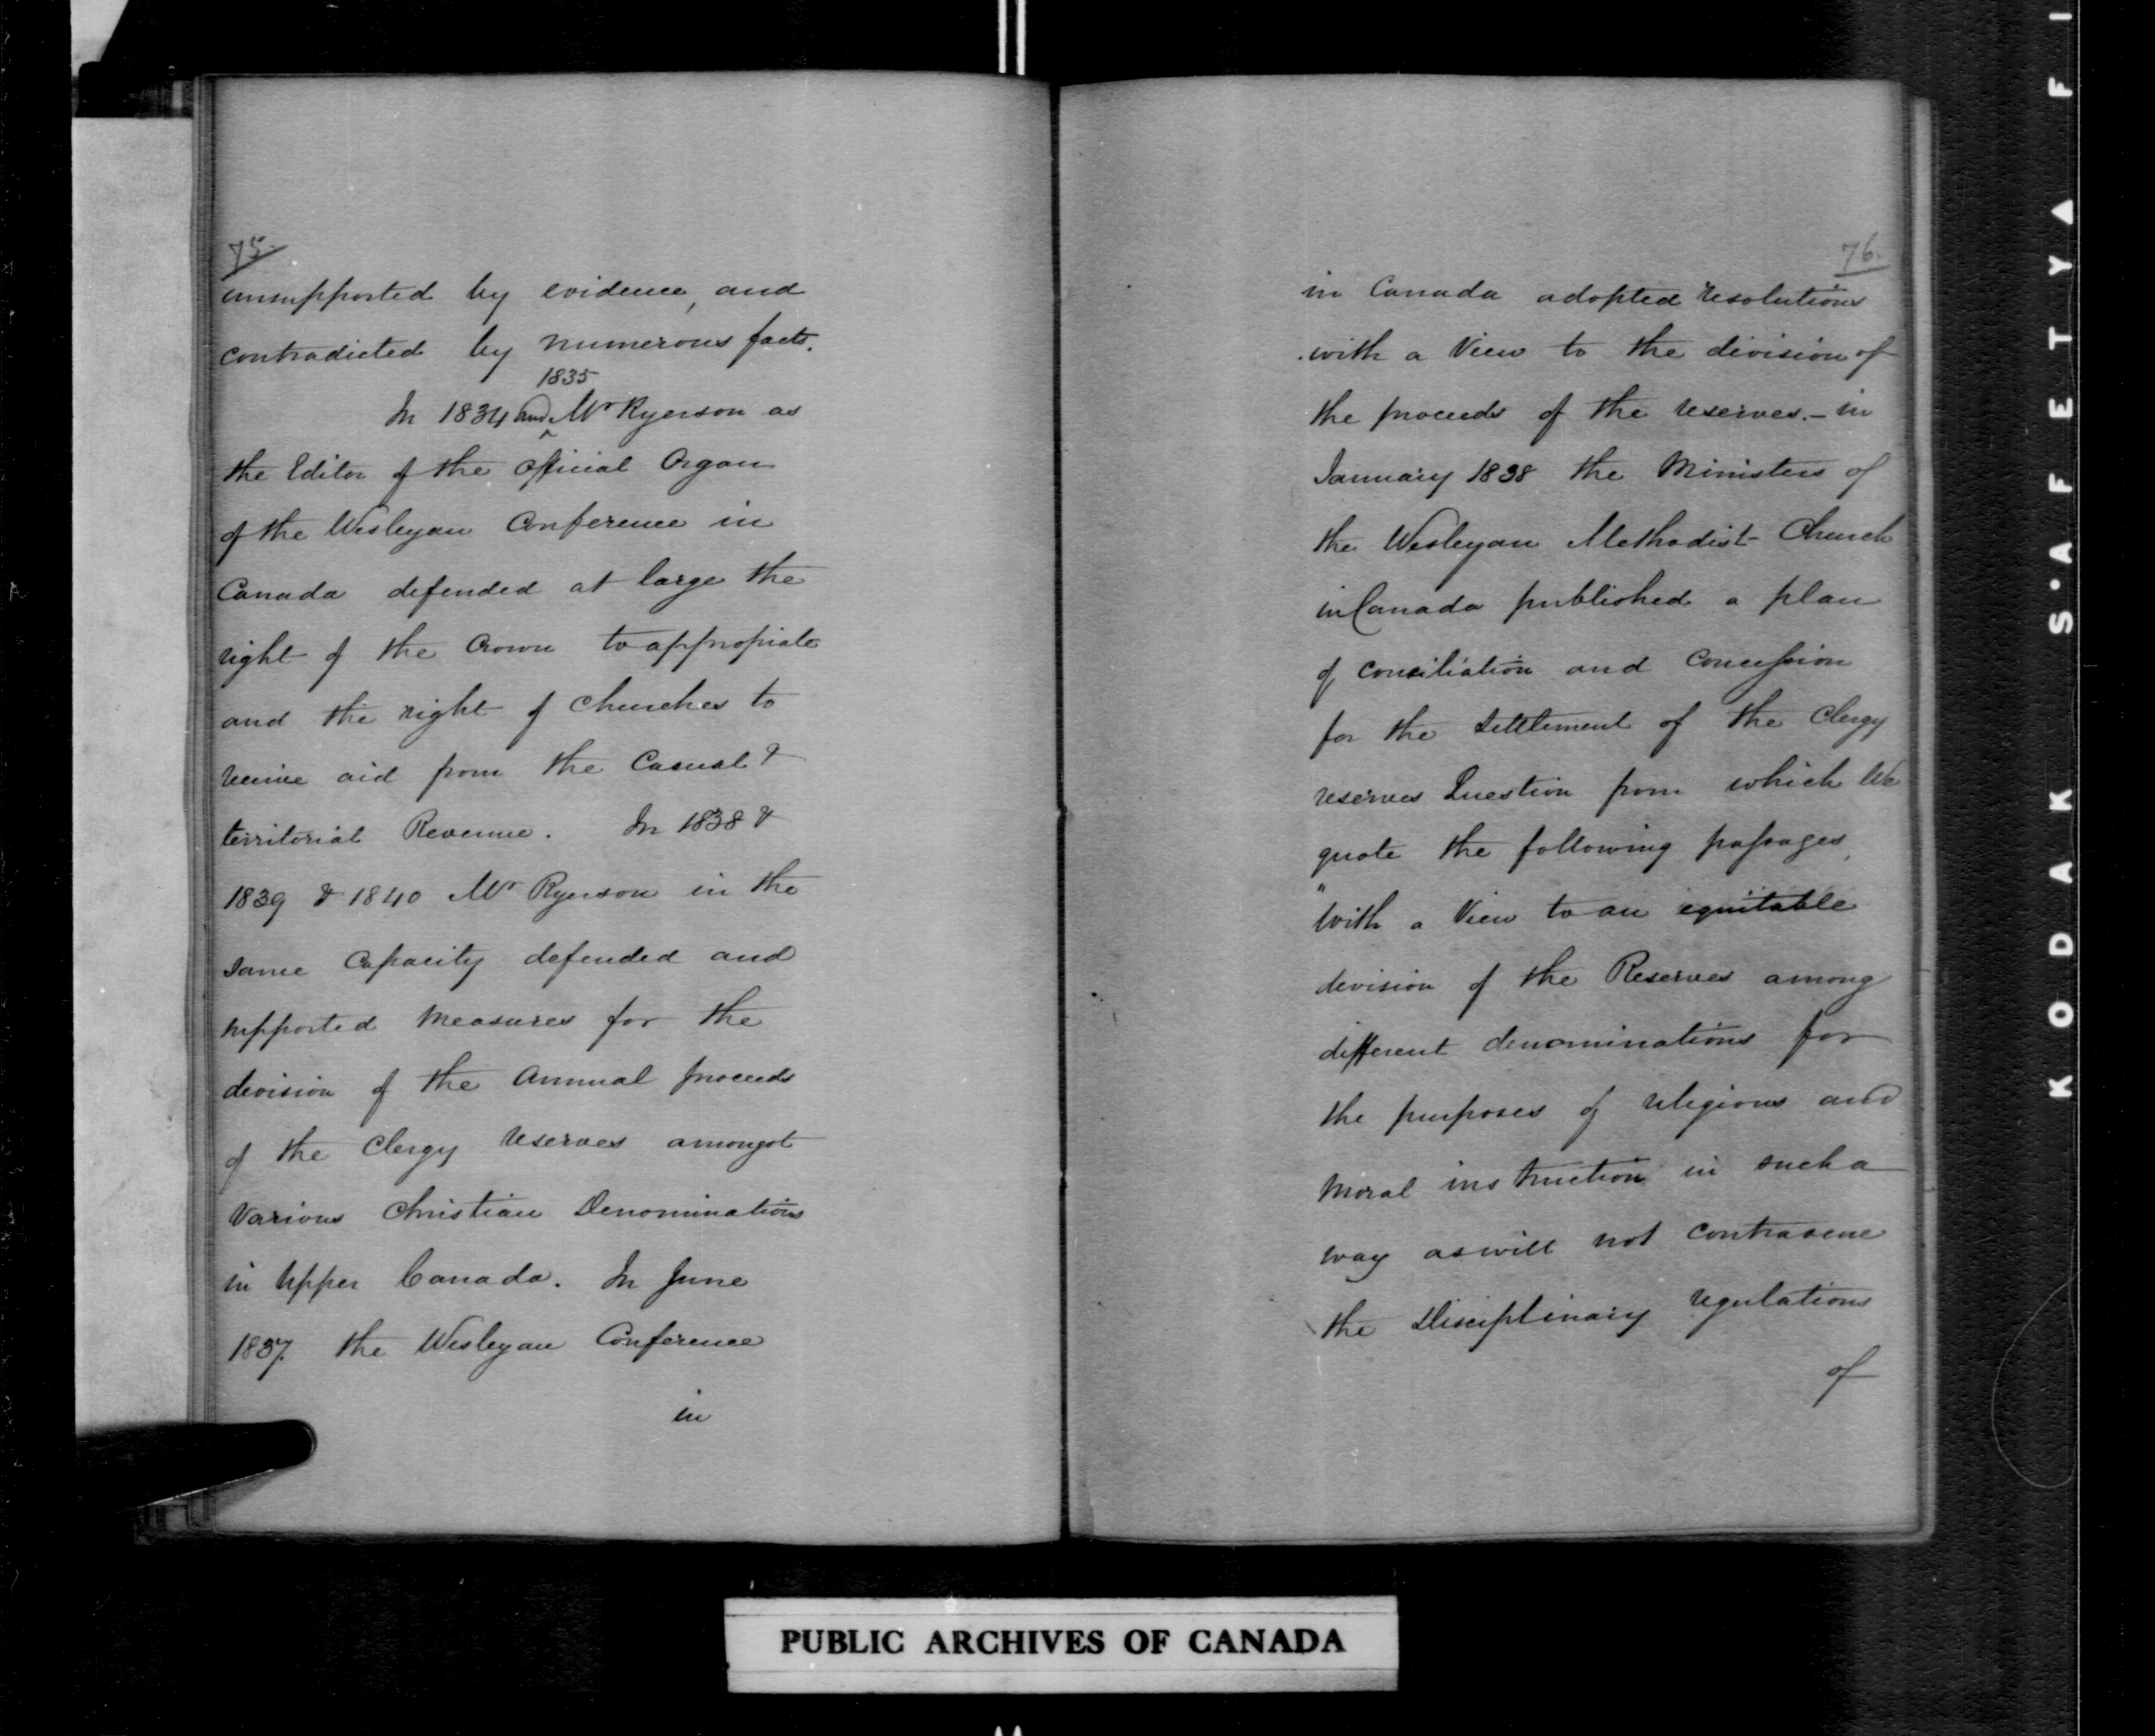 75.
unsupported by evidence, and
contradicted by numerous facts.
1835
In 1834 and Mr Ryerson as
the Editor of the official Organ
of the Wesleyan Conference in
Canada defended at large the
right of the Crown to appropiate
and the right of Churches to
receive aid from the Casual &
territorial Revenue. In 1838 &
1839 & 1840 Mr Ryerson in the
same Capacity defended and
supported measures for the
division of the Annual proceeds
of the Clergy reserves amongst
various Christian Denominations
in Upper Canada. In June
1837. the Wesleyan Conference
in
76.
in Canada adopted resolutions
with a View to the division of
the proceeds of the reserves. - in
January 1838 the Ministers of
the Wesleyan Methodist Church
in Canada published a plan
of conciliation and Concession
for the Settlement of the Clergy
reserves Question from which We
quote the following passages,
"With a View to an equitable
division of the Reserves among
different denominations for
the purposes of religious and
moral instruction in such a
way as will not contravene
the Disciplinary regulations
of
PUBLIC ARCHIVES OF CANADA
KODAK S'AFETY▲ FI